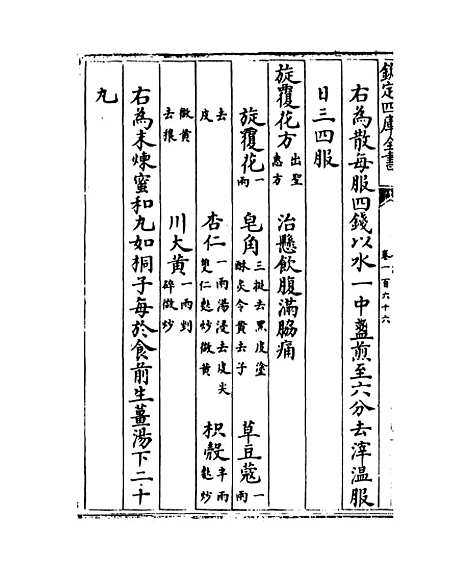 欽定四庫全書
卷一百六十六
右為散每服四錢以水一中盞煎至六分去滓温服
日三四服
旋覆花方出聖惠方 治懸飲腹滿脇痛
旋覆花一兩 皂角三挺去黑皮塗酥炙令黄去子 草豆蔻一兩
去皮 杏仁一兩湯浸去皮尖雙仁麩炒微黄 枳殼半兩麩炒
微黄去穰 川大黄一兩剉碎微炒
右為末煉蜜和丸如桐子每於食前生薑湯下二十
丸